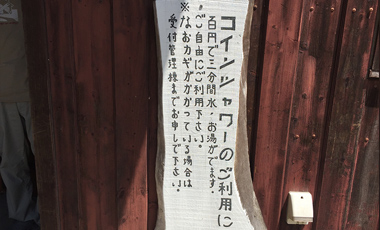 コインシャワーのご利用に
百円で三分間水・お湯がでます。
ご自由にご利用下さい。
※なおカギがかかっている場合は
受付管理棟までお申し出下さい。